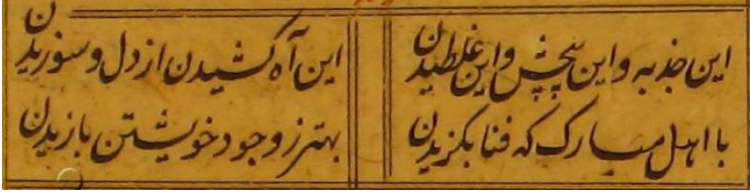 این جذبه و این پیچش و این غلطیدن
این آه کشیدن از دل و سوزیدن
با اهل مبارک که فنا بگزیدن
بهتر ز وجود خویشتن بازیدن